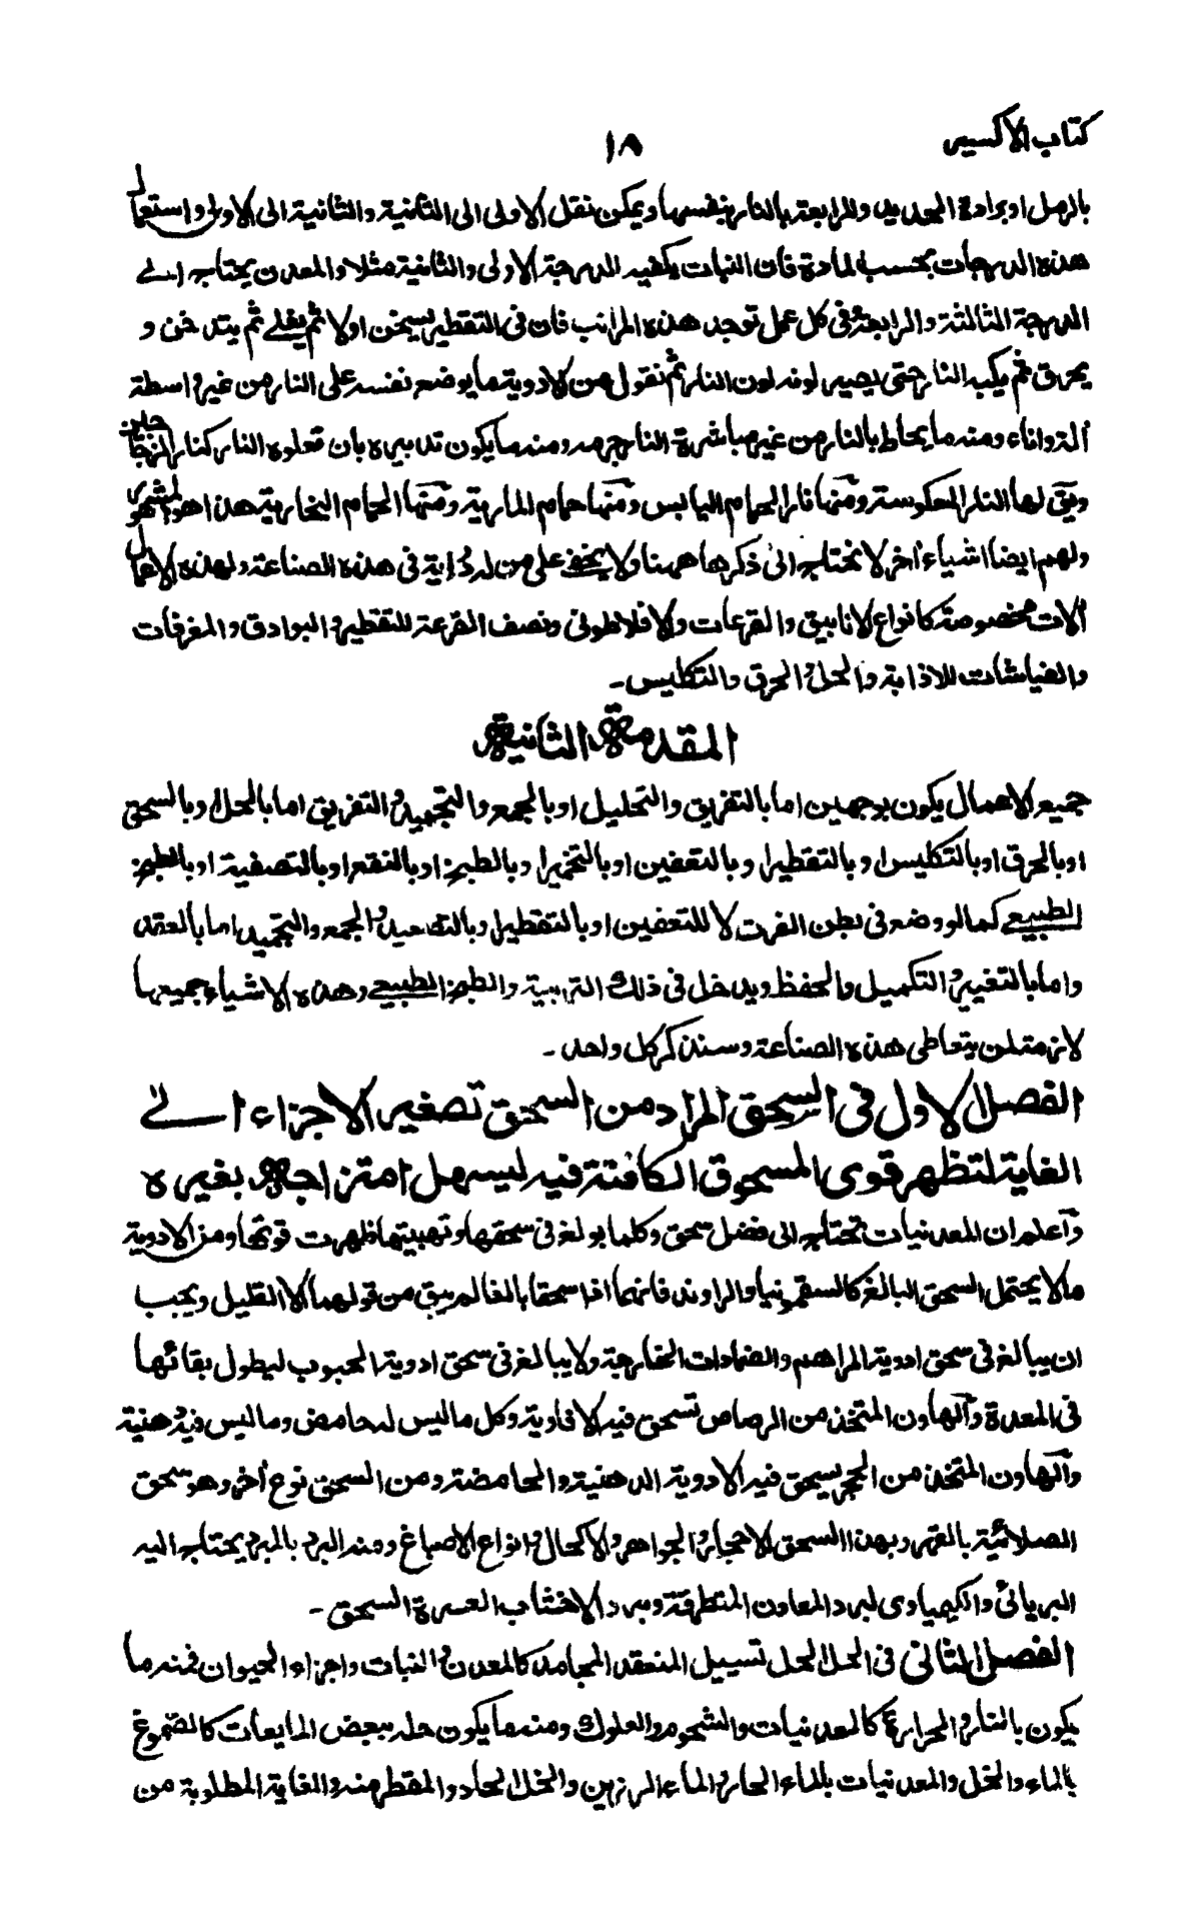 كتاب الاكسير
١٨
بالرمل او برادة الحديد والرابعة بالنار بنفسها ويمكن نقل الاولى الى الثانية والثانية الى الاولى واستعمال
هذه الدرجات بحسب المادة فان النبات يكفيه الدرجة الاولى والثانية مثلا والمعدن يحتاج الى
الدرجة الثالثة والرابعة وفى كل عمل توجد هذه المراتب فان فى التقطير يسخن اولا ثم يغلے ثم يتدخن و
يحرق ثم يكبه النار حتى يصير لونه لون النار ثم نقول من الادوية ما يوضع نفسه على النار من غير واسطة
اناء ومنه ما يحاط بالنار من غير مباشرة النار جرمه ومنه ما يكون تدبيره بان تعلوه النار كنار الزجاجين
ويق لها النار المعكوسة ومنها نار الحمام اليابس ومنها حمام المارية ومنها الحمام البخارية هذا هو المشهور
ولهم ايضا اشياء اخر لا نحتاج الى ذكرها ههنا ولا يخفے على من له دراية فى هذه الصناعة ولهذه الاعمال
آلات مخصوصة كانواع الانابيق والقرعات والافلاطونى ونصف القرعة للتقطير والبوادق والمغرفات
والفياشات للاذابة والحل والحرق والتكليس۔
المقدمة الثانية
جميع الاعمال يكون بوجهين اما بالتفريق والتحليل او بالجمع والتجميد والتفريق اما بالحل او بالسحق
او بالحرق او بالتكليس او بالتقطير او بالتعفين او بالتخمير او بالطبخ او بالنقع او بالتصفية او بالطبخ
الطبيعے كما لو وضع فى بطن الفرث لا للتعفين او بالتقطير او بالتصعيد والجمع والتجميد اما بالعقد
واما بالتغيير والتكميل والحفظ ويدخل فى ذلك التربية والطبخ الطبيعے وهذه الاشياء جميعها
لازمة لمن يتعاطى هذه الصناعة وسنذكر كل واحد۔
الفصل الاول فى السحق المراد من السحق تصغير الاجزاء الے
الغاية لتظهر قوى المسحوق الكائنة فيه ليسهل امتزاجه بغيره
واعلم ان المعدنيات تحتاج الى فضل سحق وكلما بولغ فى سحقها وتهبيتها ظهرت قوتها ومن الادوية
ما لا يحتمل السحق البالغ كالسقمونيا والراوند فانهما اذا سحقا بالغا لم يبق من قوتهما الا القليل ويجب
ان يبالغ فى سحق ادوية المراهم والضمادات الخارجة ولا يبالغ فى سحق ادوية الحبوب ليطول بقائها
فى المعدة والهاون المتخذ من الرصاص تسحق فيه الافاوية وكل ما ليس له حامض وما ليس فيه دهنية
والهاون المتخذ من الحجر يسحق فيه الادوية الدهنية والحامضة ومن السحق نوع آخر وهو سحق
الصلائية بالفهر وبهذا السحق الاحجار والجواهر والاكحال وانواع الاصباغ ومنه البرد بالمبرد يحتاج اليه
البريائى والكيمياوى لبرد المعاون المتطرقة ومبرد الاخشاب العسرة السحق۔
الفصل الثانى فى الحل الحل تسييل المنعقد الجامد كالمعدن والنبات واجزاء الحيوان فمنه ما
يكون بالنار والحرارة كالمعدنيات والشحوم والعلوك ومنه ما يكون حله ببعض المايعات كالصموغ
بالماء والخل والمعدنيات بالماء الحار والماء الرزين والخل الحاد والمقطر منه والغاية المطلوبة من